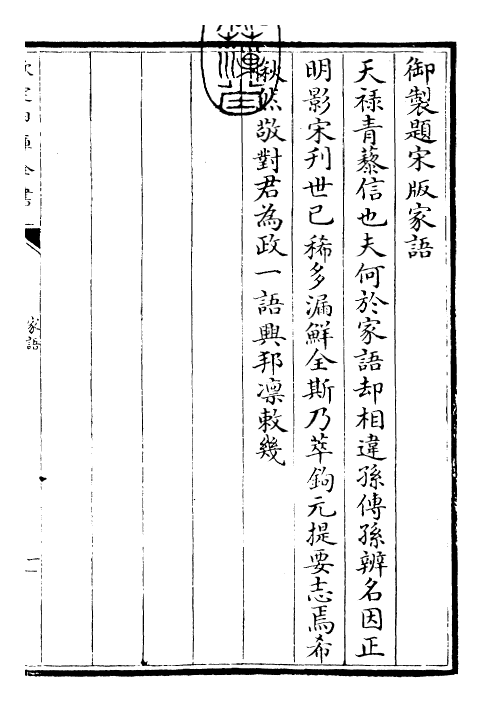 御製題宋版家語
天祿青藜信也夫何於家語却相違孫傳孫辨名因正
明影宋刋世已稀多漏鮮全斯乃萃鉤元提要志焉希
愀然敬對君為政一語興邦凛敕幾
家語
一